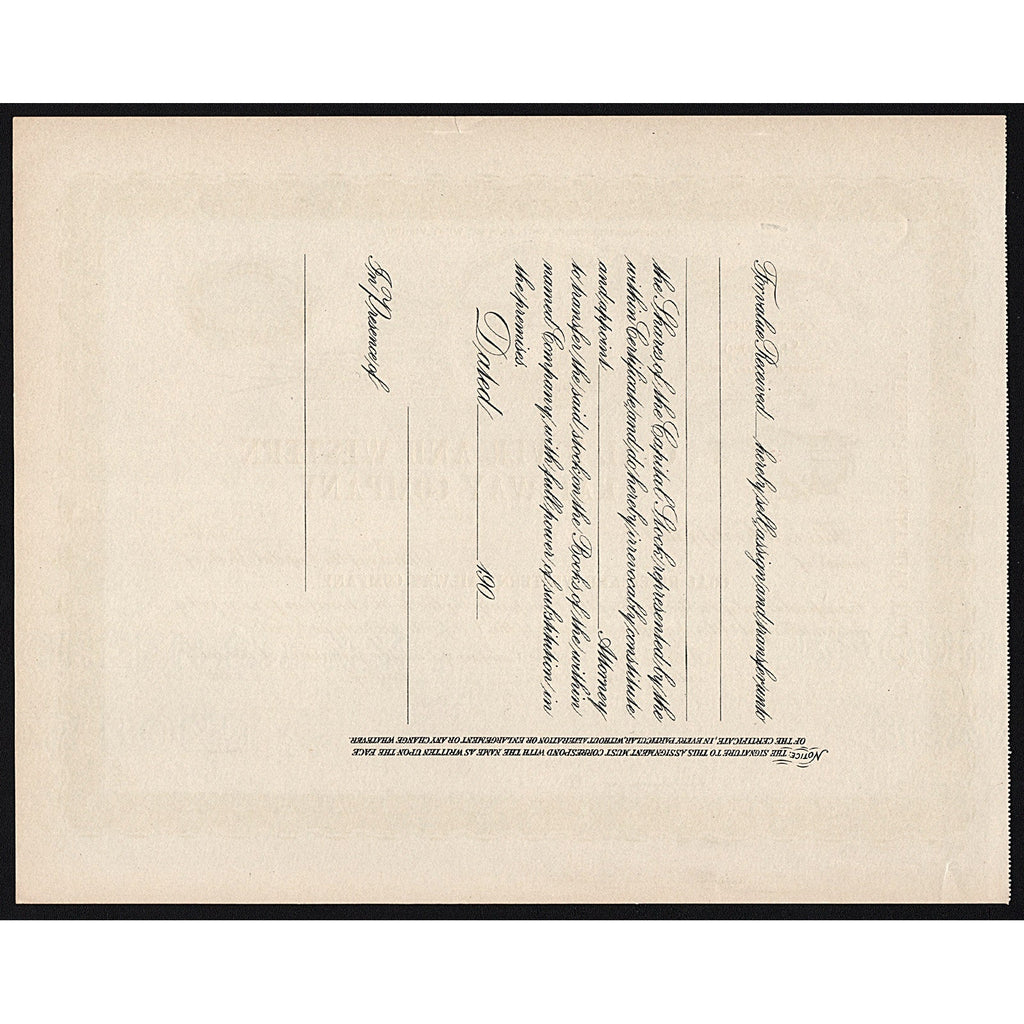 For value Received hereby sell, assign and transfer unto
the Shares of the Capital Stock represented by the
within Certificate and do hereby irrevocably constitute
and appoint Attorney
to transfer the said stock on the Books of the within
named Company, with full power of substitution in
the premises.
Dated 190
In Presence of
NOTICE: THE SIGNATURE TO THIS ASSIGNMENT MUST CORRESPOND WITH THE NAME AS WRITTEN UPON THE FACE
OF THE CERTIFICATE, IN EVERY PARTICULAR, WITHOUT ALTERATION OR ENLARGEMENT OR ANY CHANGE WHATEVER.